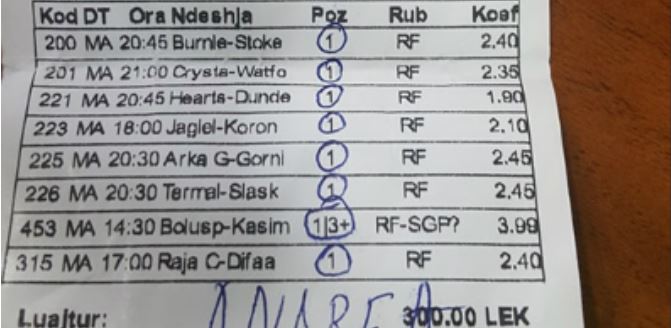 Kod DT Ora Ndeshja Poz Rub Koef
200 MA 20:45 Burnle-Stoke 1 RF 2.40
201 MA 21:00 Crysta-Watfo 1 RF 2.35
221 MA 20:45 Hearts-Dunde 1 RF 1.90
223 MA 18:00 Jagiel-Koron 1 RF 2.10
225 MA 20:30 Arka G-Gorni 1 RF 2.45
226 MA 20:30 Termal-Slask 1 RF 2.45
453 MA 14:30 Bolusp-Kasim 1|3+ RF-SGP? 3.99
315 MA 17:00 Raja C-Difaa 1 RF 2.40
Luajtur: 300.00 LEK